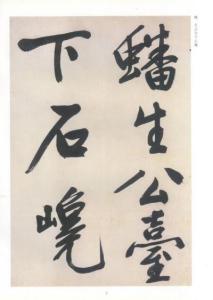 蟠生公臺
下石巉